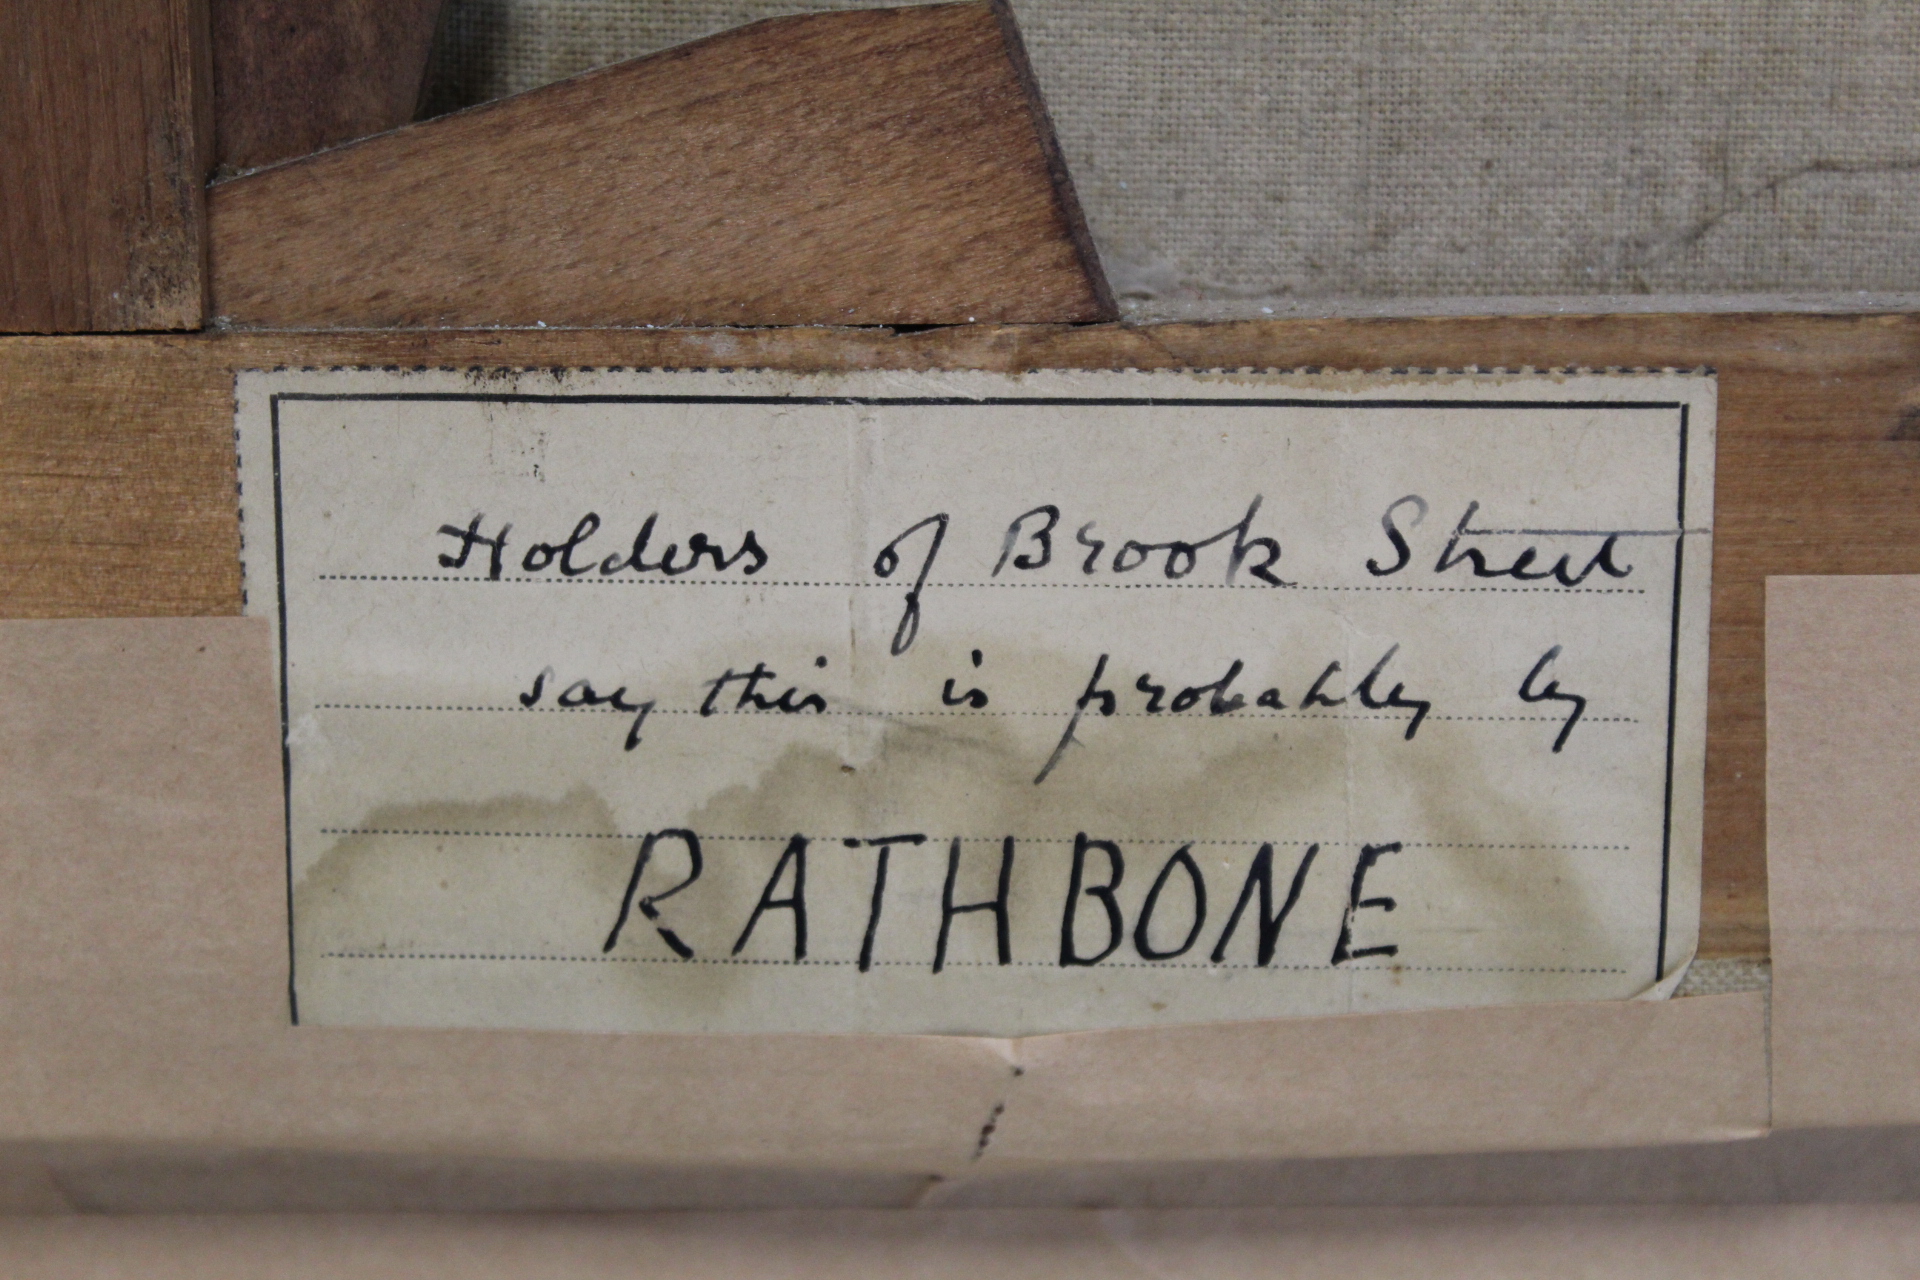 Holders of Brook Street
say this is probably by
RATHBONE